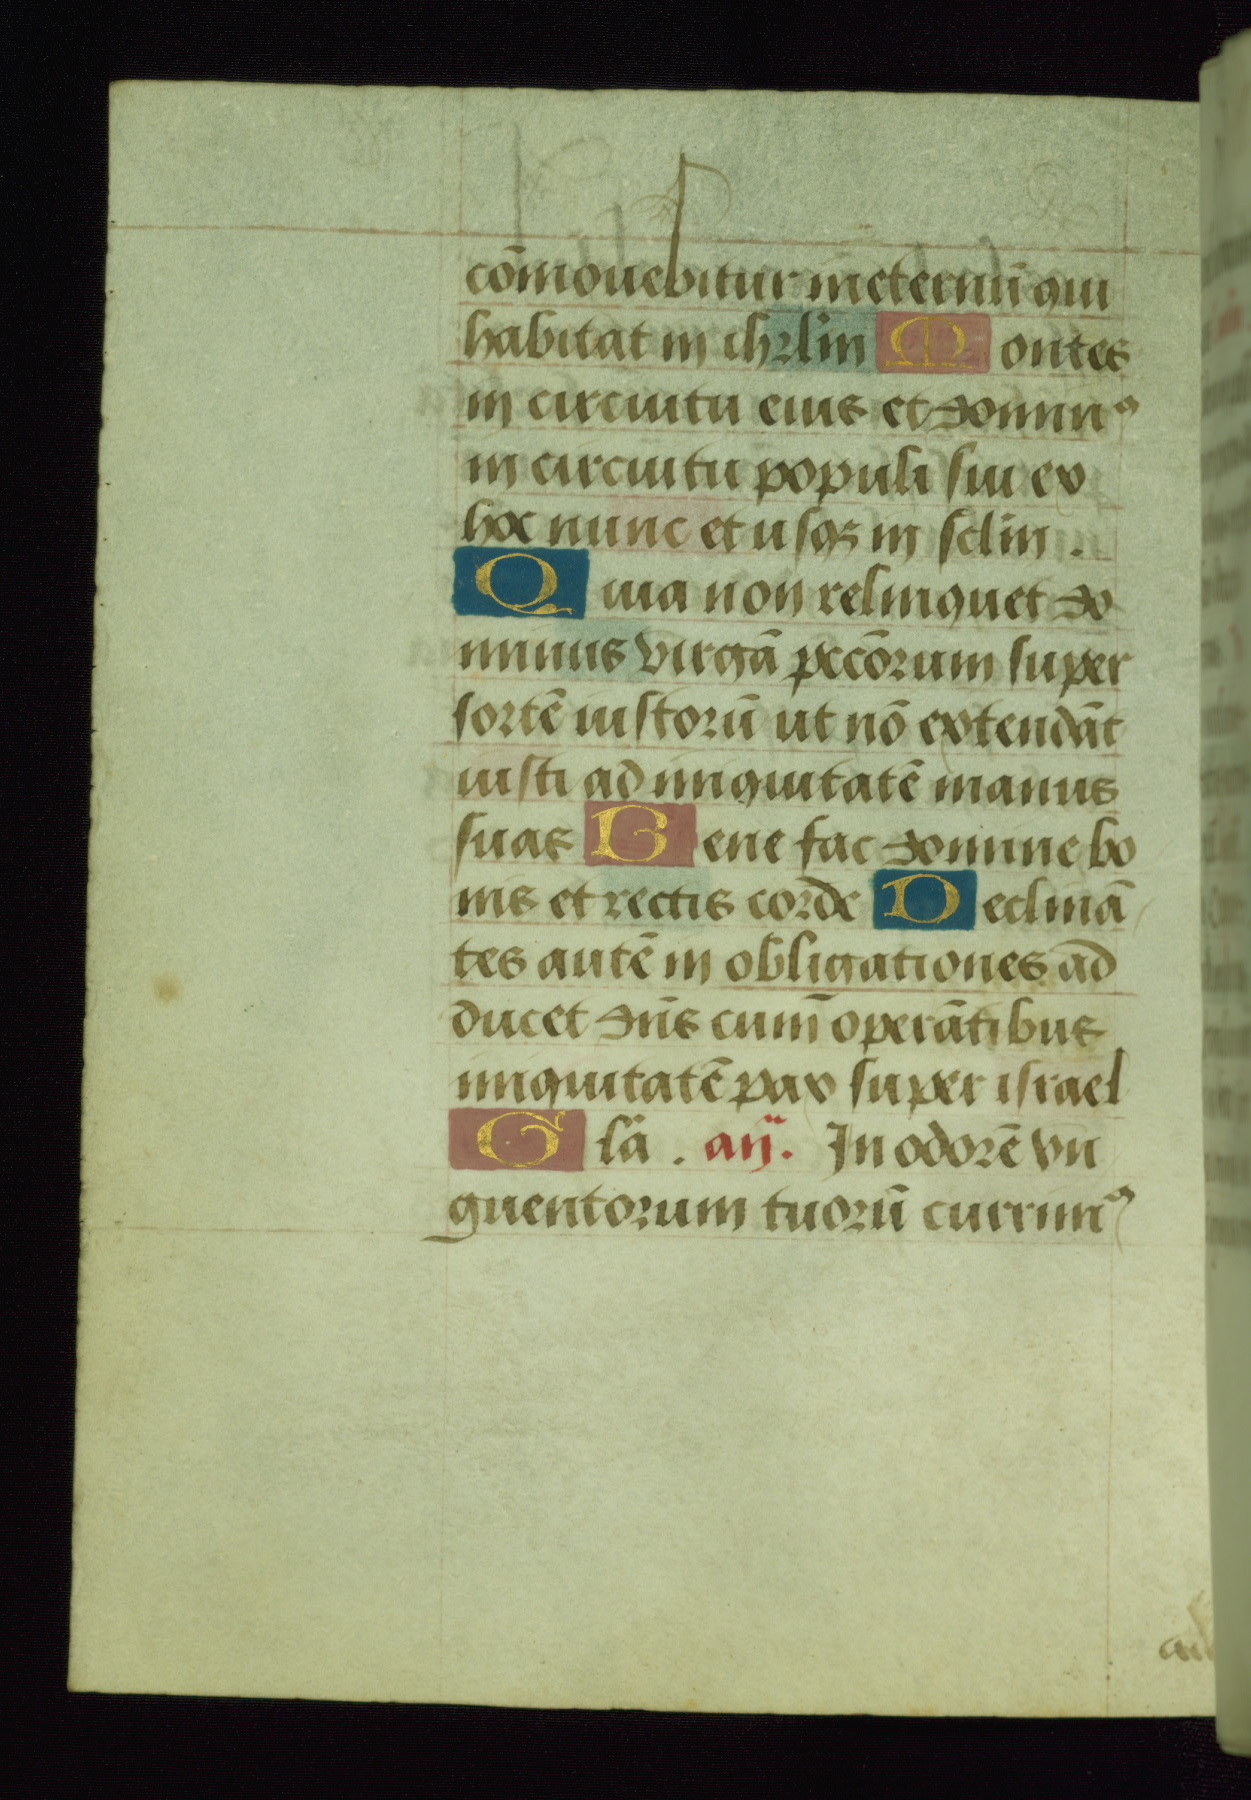 cōmouebitur in eternū qui
habitat in ihrlm̄ Montes
in circuitu eius et dominꝰ
in circuitu populi sui ex
hoc nunc et usqꝫ in sclm̄ .
Quia non relinquet do
minus virgā pctōrum super
sortē iustorū ut nō extendāt
iusti ad iniquitatē manus
suas Bene fac domine bo
nis et rectis corde Declinā
tes autē in obligationes ad
ducet dn̄s cum operātibus
iniquitatē pax super israel
Glā . an̄. In odorē vn
guentorum tuorū currimꝰ